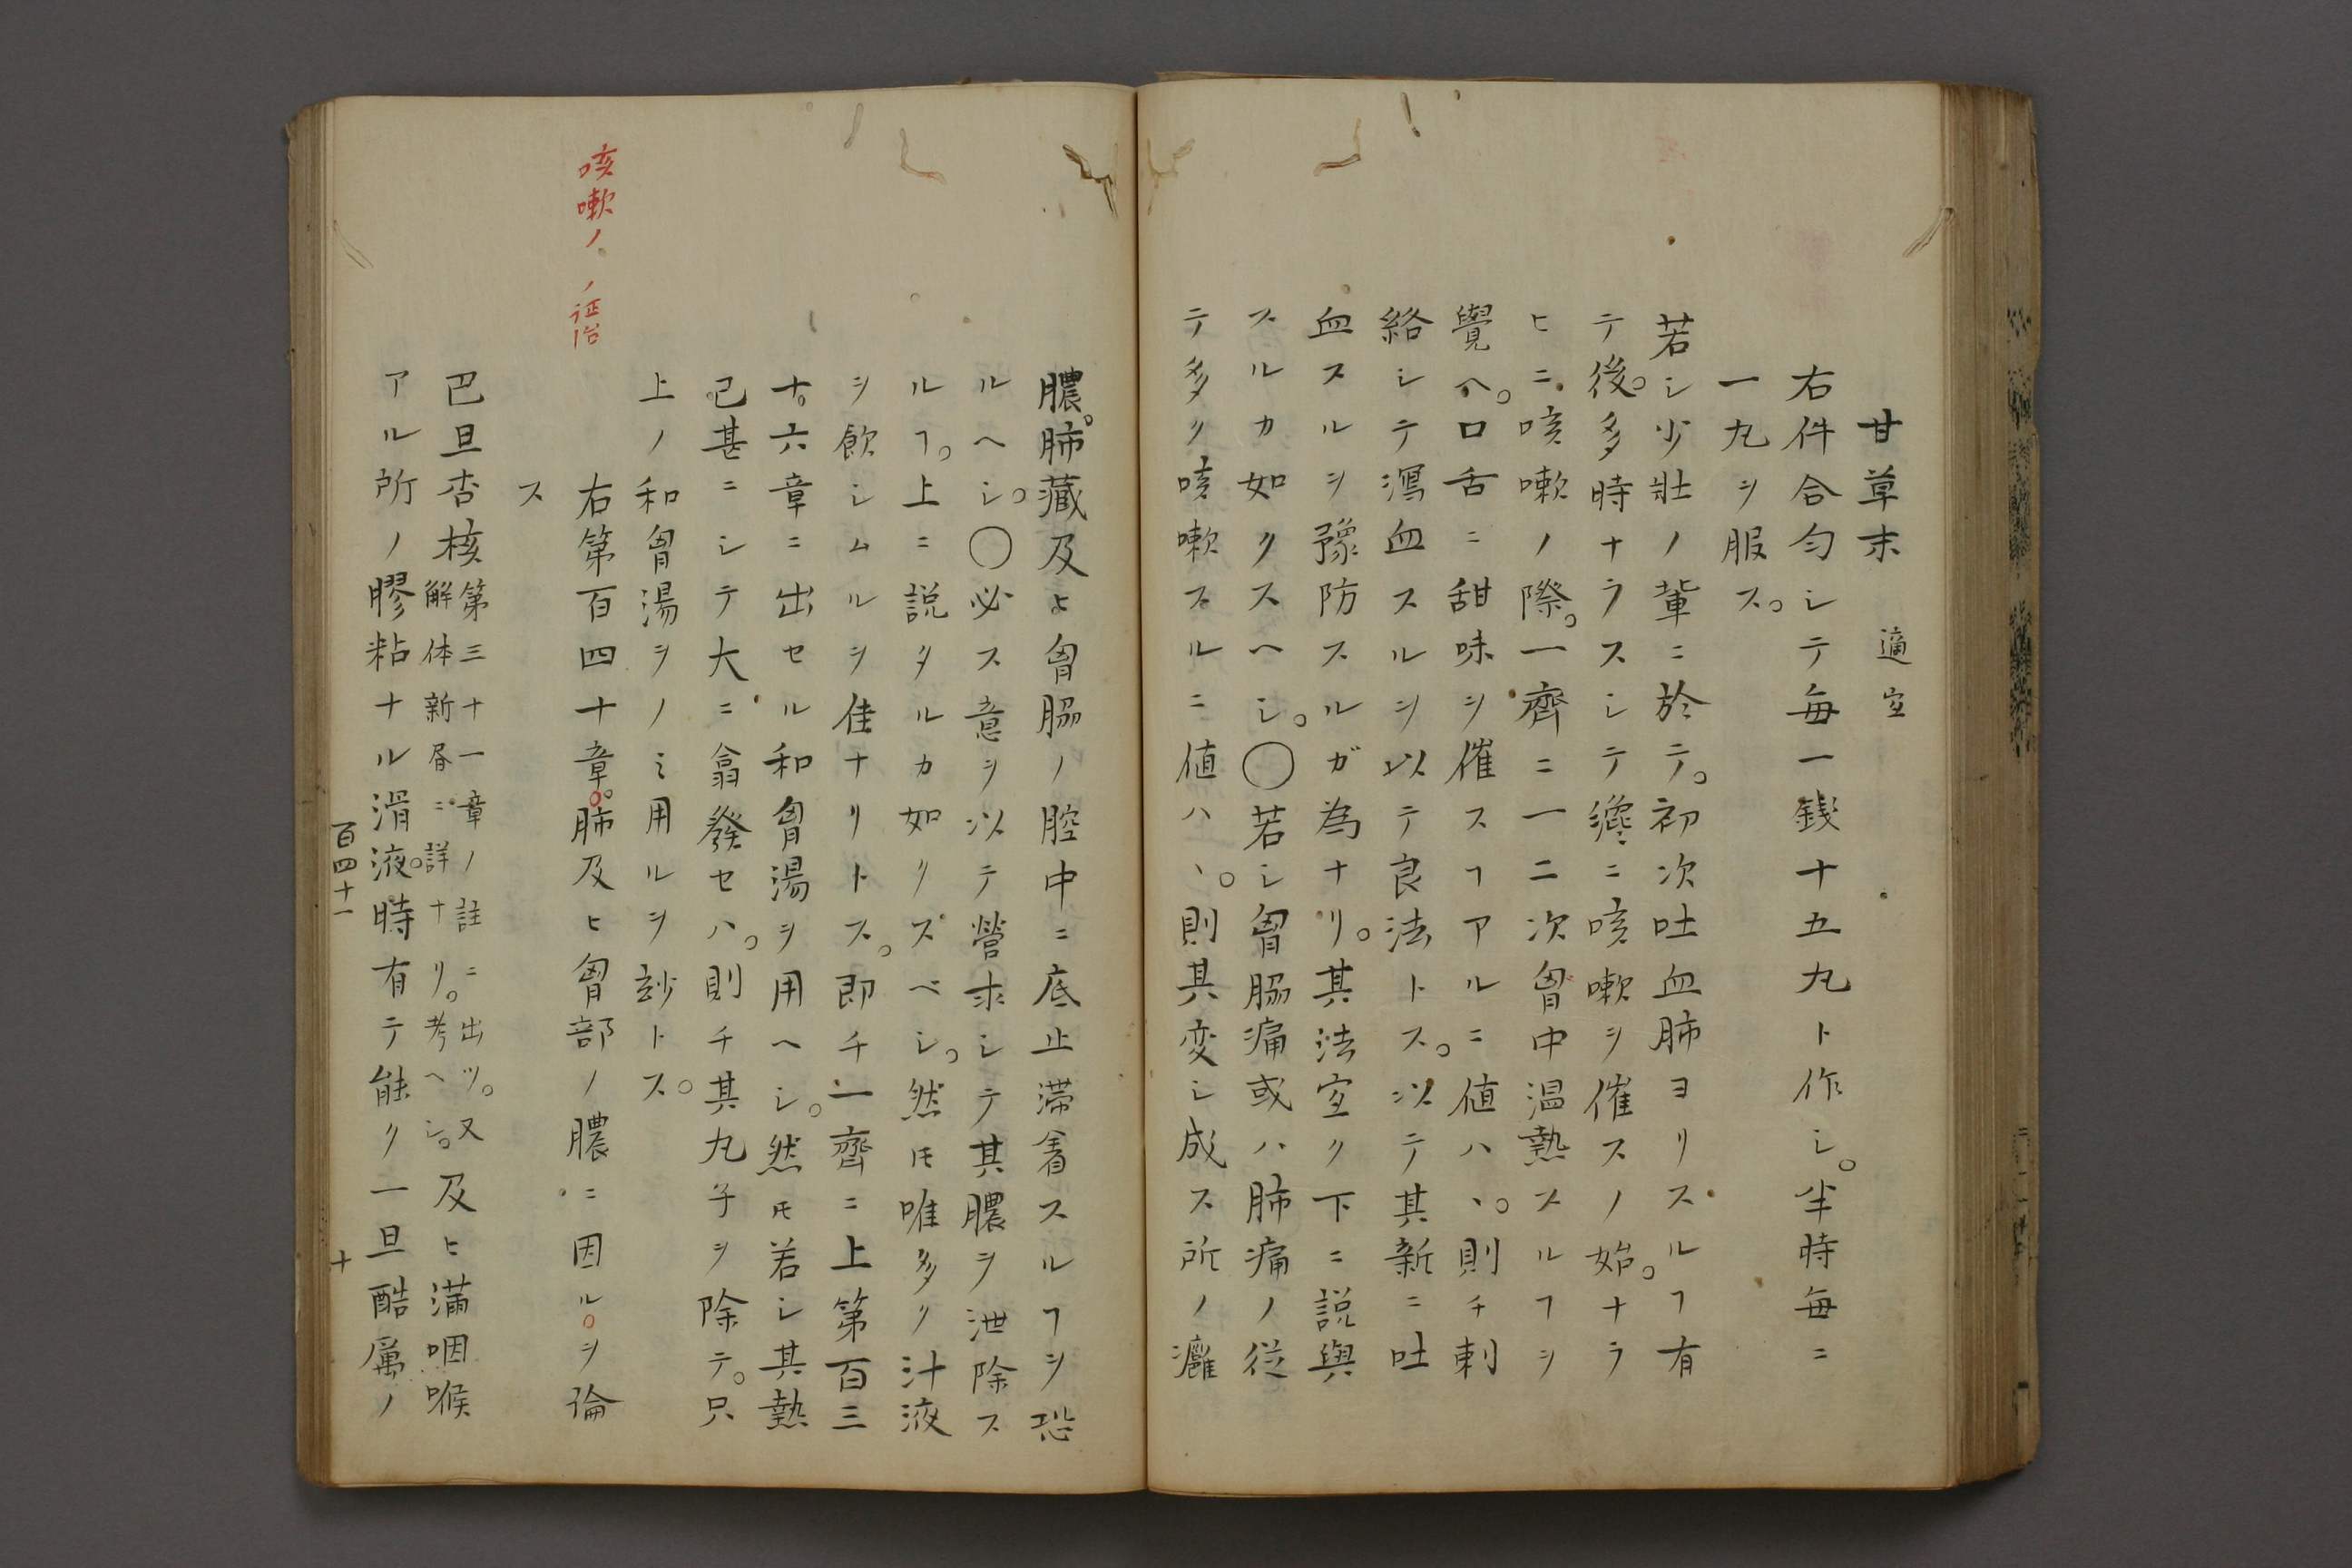 甘草末　適宜
右件合匀シテ毎一銭十五丸ト作シ。半時毎ニ
一丸ヲ服ス。
若シ少壮ノ輩ニ於テ。初次吐血肺ヨリスルヿ有
テ後。多時ナラスシテ纔ニ咳嗽ヲ催スノ始。ナラ
ヒニ咳嗽ノ際。一齊ニ一二次胷中温熱スルヿヲ
覺ヘ。口舌ニ甜味ヲ催スヿアルニ値ハヽ。則チ刺
絡シテ瀉血スルヲ以テ良法トス。以テ其新ニ吐
血スルヲ豫防スルガ為ナリ。其法宜ク下ニ説與
スルカ如クスヘシ。〇若シ胷脇痛或ハ肺痛ノ従
テ多ク咳嗽スルニ値ハヽ。則其変シ成ス所ノ癰
膿。肺藏及ヒ胷脇ノ腔中ニ底止滞着スルヿヲ恐
ルヘシ。〇必ス意ヲ以テ營求シテ其膿ヲ泄除ス
ルヿ。上ニ説タルカ如クスベシ。然圧唯多ク汁液
ヲ飲シムルヲ佳ナリトス。即チ一齊ニ上第百三
十。六章ニ出セル和胷湯ヲ用ヘシ。然圧若シ其熱
已甚ニシテ大ニ翕發セハ。則チ其丸子ヲ除テ。只
上ノ和胷湯ヲノミ用ルヲ玅トス。
咳嗽ノ。ノ征治
右第百四十章。肺及ヒ胷部ノ膿ニ因ル。ヲ論
ス
巴旦杏核第三十一章ノ註ニ出ツ。又
解体新書ニ詳ナリ。考ヘシ。及ヒ満咽喉
アル所ノ膠粘ナル滑液。時有テ能ク一旦酷厲ノ
百四十一　十